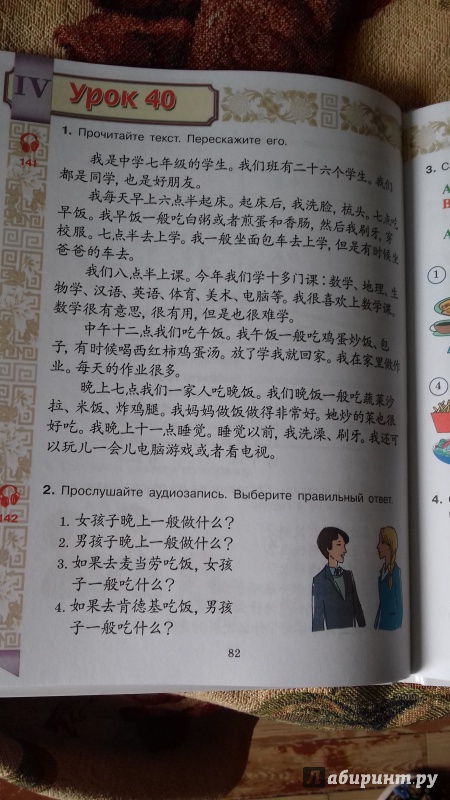 IV
Урок 40
1. Прочитайте текст. Перескажите его.
141
我是中学七年级的学生。我们班有二十六个学生。我们
都是同学, 也是好朋友。
我每天早上六点半起床。起床后, 我洗脸, 梳头。七点吃
早饭。我早饭一般吃白粥或者煎蛋和香肠, 然后我刷牙, 穿
校服。七点半去上学。我一般坐面包车去上学, 但是有时候坐
爸爸的车去。
我们八点半上课。今年我们学十多门课: 数学、地理、生
物学、汉语、英语、体育、美术、电脑等。我很喜欢上数学课。
数学很有意思, 很有用, 但是也很难学。
中午十二点我们吃午饭。我午饭一般吃鸡蛋炒饭、包
子, 有时候喝西红柿鸡蛋汤。放了学我就回家。我在家里做作
业。每天的作业很多。
晚上七点我们一家人吃晚饭。我们晚饭一般吃蔬菜沙
拉、米饭、炸鸡腿。我妈妈做饭做得非常好。她炒的菜也很
好吃。我晚上十一点睡觉。睡觉以前, 我洗澡、刷牙。我还可
以玩儿一会儿电脑游戏或者看电视。
2. Прослушайте аудиозапись. Выберите правильный ответ.
142
1. 女孩子晚上一般做什么?
2. 男孩子晚上一般做什么?
3. 如果去麦当劳吃饭, 女孩
子一般吃什么?
4. 如果去肯德基吃饭, 男孩
子一般吃什么?
82
3. С
A
B
A
1
4
4.
лабиринт.ру